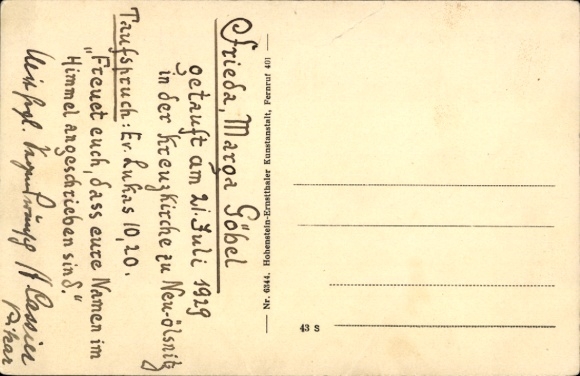 Frieda, Marga Göbel
getauft am 21. Juli 1929
in der Kreuzkirche zu Neu-Ölsnitz
Taufspruch: Ev. Lukas 10,20.
"Freuet euch, dass eure Namen im
Himmel angeschrieben sind."
Mit
Vikar
Nr. 6344. Hohenstein-Ernstthaler Kunstanstalt, Fernruf 401
43 S